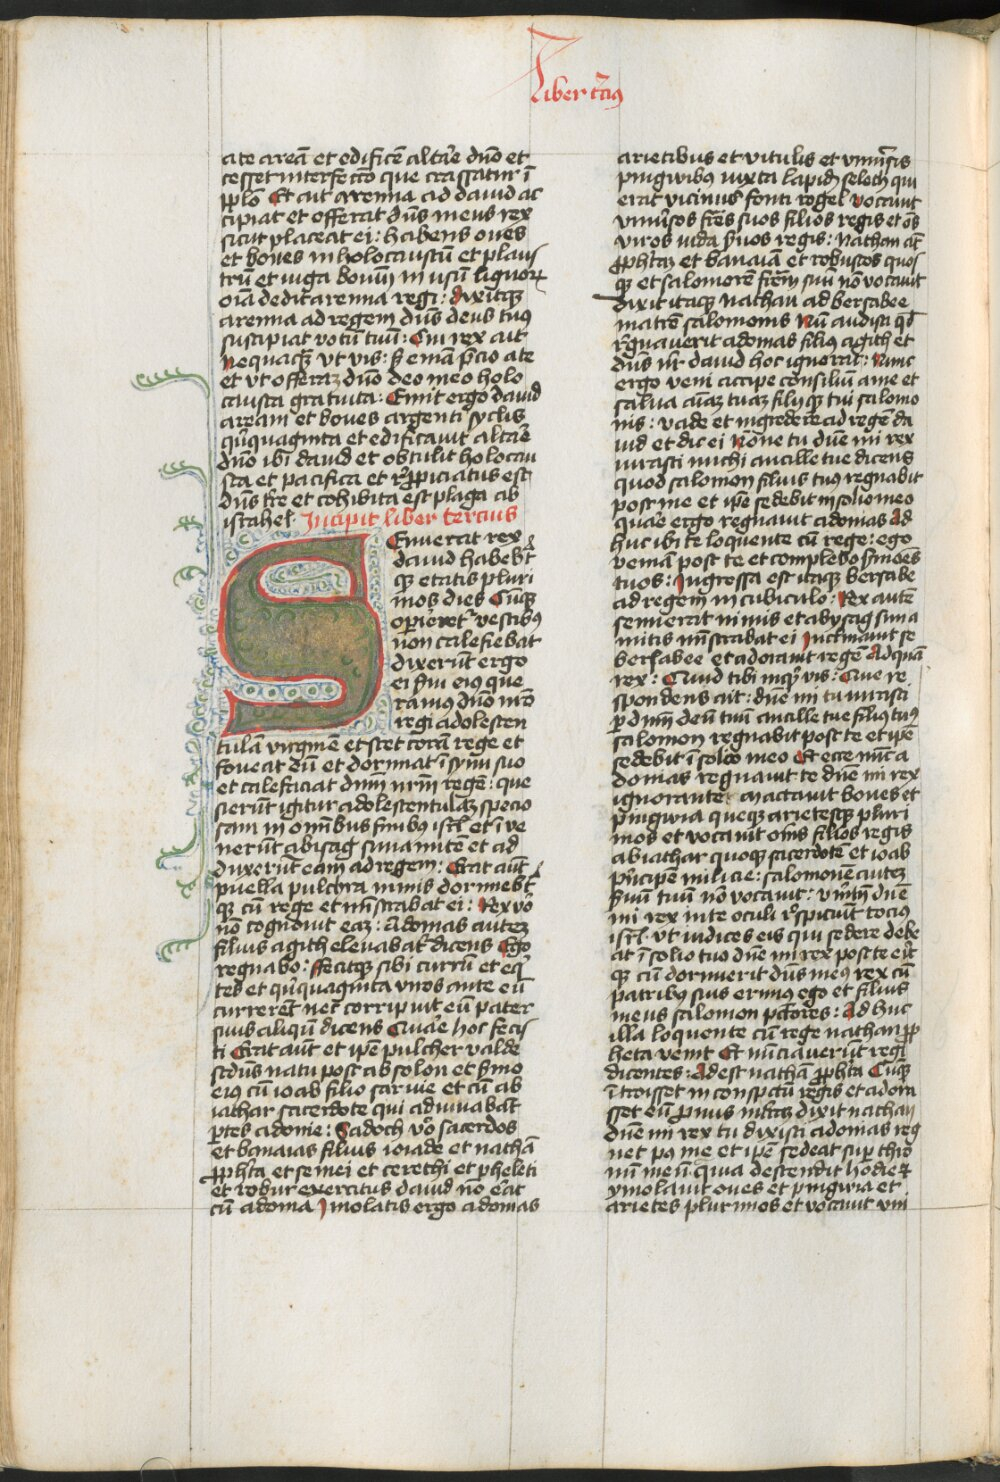 Liber t͞cius
a te areā et edificē altar̄e dn̄o et
cesset interfectō que crassatur ī
pp̄lo Et ait arenna ad dauid ac
cipiat et offerat dn̄s meus rex
sicut placeat ei : habens oues
et boues in holocaustū et plaus
trū et iuga boum̄ in usum̄ lignorꝝ
oīa dedit arenna regi : dixitqꝫ
arenna ad regem dn̄s deus tuꝯ
suscipiat votū tuū : Cui rex ait
nequaqꝫ ut vis : sꝫ emā p̄cio a te
et ut offeraꝫ dn̄o deo meo holo
causta gratuita : Emit ergo dauid
aream et boues argenti syclis
qn̄quaginta et edificauit altar̄e
dn̄o ibi dauid et obtulit holocau
sta et pacifica et rꝓpiciatus est
dn̄s tr̄e et cohibita est plaga ab
israhel Incipit liber tercius
Et rex
dauid habebt̄
qꝫ etatis pluri
mos dies Cūqꝫ
opīeret᷑ vestibꝯ
non calefiebat
dixerūt ergo
ei ẜui eiꝯ que
ramꝯ dn̄o nr̄o
regi adolescen
tulā virginē et stet corā rege et
foueat eū et dormiat ī synu suo
et calefaciat dnm̄ nrm̄ regē : que
sierūt igitur adolescentulaꝫ specio
sam in omībus finibꝯ isrl̄ et ī ve
nerūt abisag sunamite et ad
duxerūt eam ad regem : Erat aūt
puella pulcra nimis dormiebt̄
qꝫ cū rege et mīstrabat ei : Rex vō
nō cognouit eaꝫ : Adomas auteꝫ
filius agith eleuabat᷑ dicens Ego
regnabo : ffecitqꝫ sibi currū et eq̄
tes et qn̄quaginta viros ante eū
currerēt nec corripuit eū pater
suus aliqn̄ dicens Quar̄e hoc fecis
ti Erat aūt et ip̄e pulcher valde
scdūs natu post absolon et ẜmo
eiꝯ cū ioab filio saruie et cū ab
iathar sacerdote qui adiuuabāt
ꝑtes adonie : Sadoch vō sacerdos
et banaias filius ioiade et nathā
ꝓphta et semei et cerethi et pheleti
et robur exercitus dauid nō erat
cū adonia Imolatis ergo adomas
arietibus et vitulis et vniūsis
pingwibꝯ iuxta lapidē seloth qui
erat vicinus fonti rogel vocauit
vniūsos frēs suos filios regis et oēs
viros iuda ẜuos regis : Nathan aūt
ꝓphtaꝫ et banaiā et robustos quos
qꝫ et salomonē frēm suū nō vocauit
dixit itaqꝫ nathan ad bersabee
matrē salomonis Nū audisti qd̄
rꝰgnauerit adomas filiꝯ agith et
dn̄s nr̄ dauid hoc ignorat : Nunc
ergo veni accipe consiliū a me et
salua aīaꝫ tuaꝫ filijqꝫ tui salomo
nis : vade et ingredere ad regē da
uid et dic ei Nōne tu dn̄e mi rex
iurasti michi ancille tue dicens
quod salomon filius tuꝯ regnabit
post me et ip̄e sedebit in solio meo
quar̄e ergo regnauit adomas Ad
huc ibi te loquente cū rege : ego
veniā post te et complebo ẜmoēs
tuos : Ingressa est itaqꝫ bersabe
ad regem in cubiculo : Rex autē
senuerat nimis et abysag suna
mitis mīstrabat ei Inclinauit se
bersabee et adorauit regē Ad quā
rex : Quid tibi inqꝫ vis : Que re
spondens ait : dn̄e mi tu iurasti
ꝑ dnm̄ deū tuū ancille tue filiꝯ tuꝯ
salomon regnabit post te et ip̄e
sedebit ī solio meo Et ecce nūc a
domas regnauit te dn̄e mi rex
ignorante : mactauit boues et
pingwia queqꝫ arietesqꝫ pluri
mos et vocauit oēs filios regis
abiathar quoqꝫ sacerdotē et ioab
pn̄cipem milicie : salomonē auteꝫ
ẜuū tuū nō vocauit : vrm̄tn̄ dn̄e
mi rex in te oculi rꝰspiciūt tociꝯ
isrl̄ . vt iudices eis qui sedere debe
at ī solio tuo dn̄e mi rex post te erit
qꝫ cū dormierit dn̄s meꝯ rex cū
patribꝯ suis erimꝯ ego et filius
meus salomon pctōres : Ad huc
illa loquente cū rege nathan ꝓp
heta venit Et nūciauerūt regi
dicentes : Adest nathā ꝓphta Cūqꝫ
ītroisset in conspctū regis et adora
sset eū ꝓnus in terꝫ dixit nathan
dn̄e mi rex tu dixisti adomas reg
net pꝯ me et ip̄e sedeat suꝑ thro
nū meū quia descendit hodie et
ymolauit oues et pingwia et
arietes plurimos et vocauit vni